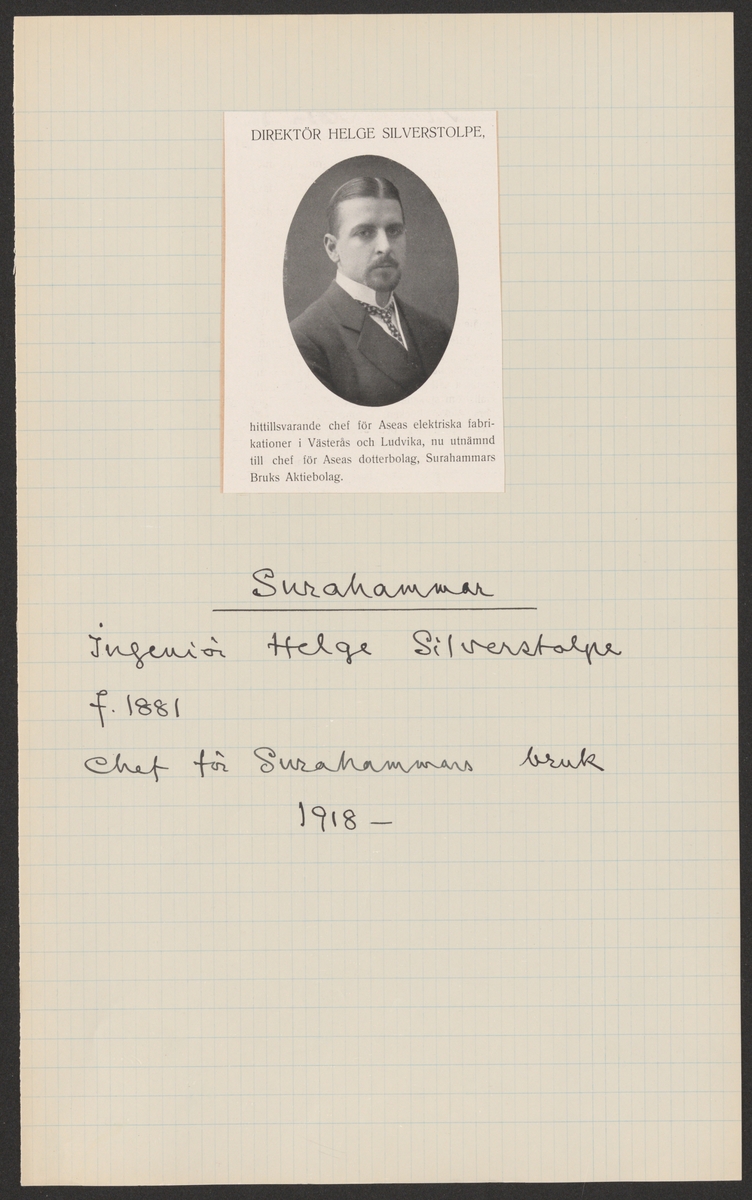 DIREKTÖR HELGE SILVERSTOLPE,
hittillsvarande chef för Aseas elektriska fabri-
kationer i Västerås och Ludvika, nu utnämnd
till chef för Aseas dotterbolag, Surahammars
Bruks Aktiebolag.
Surahammar
Ingeniör Helge Silverstolpe
f. 1881
Chef för Surahammars bruk
1918 —